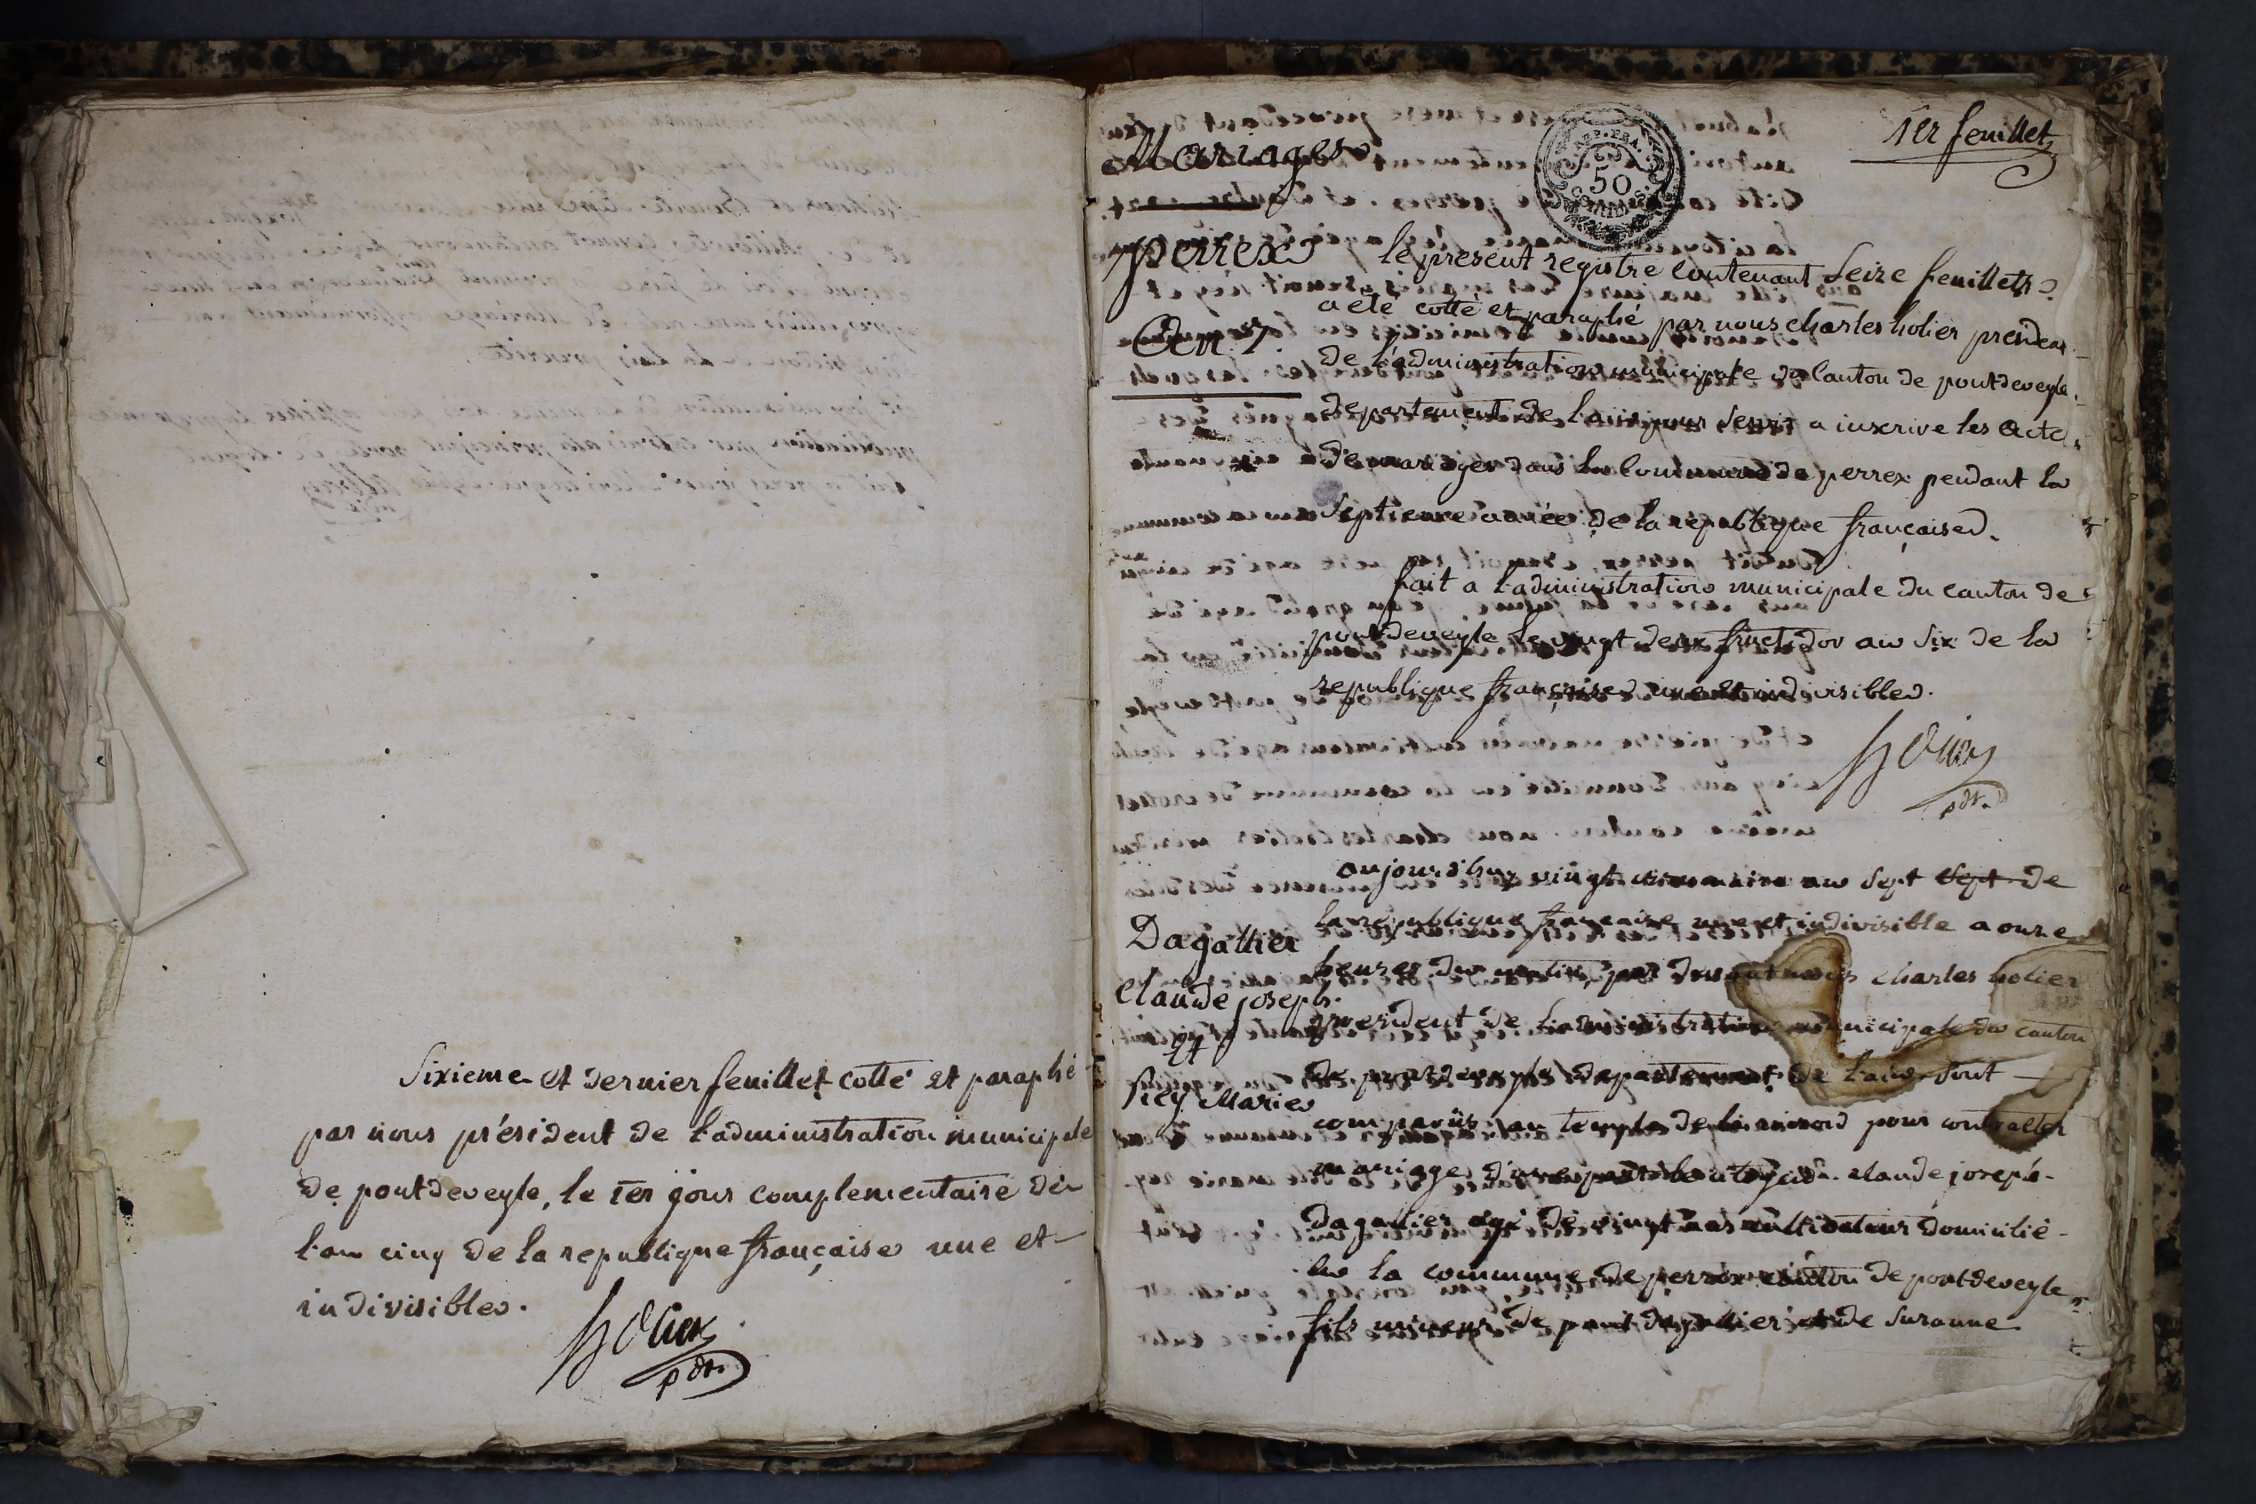 Sixieme et dernier feuillet cotté et paraphé
par nous président de l'administration municipale
de pontdeveyle, le 1er jour complementaire de
l'an cinq de la republique française une et
indivisible.
holier
pdt.
1er feuillet
Mariages
REP. FRA.
50
CENTIMES
perrex
an 7
le present registre contenant seize feuillets
a été cotté et paraphé par nous charles holier president
de l'administration municipale du canton de pontdeveyle
departement de l'ain pour servir a inscrire les actes
de mariages dans la commune de perrex pendant la
septieme année de la republique française.
fait a l'administration municipale du canton de
pontdeveyle le vingt deux fructidor an six de la
republique française une et indivisible.
holier
pdt.
Dagallier
Claude joseph
et
picy Marie
aujourd'huy vingt an sept sept de
la republique française une et indivisible a onze
heures du matin, par devant nous charles holier
president de l'administration municipale du canton
de pontdeveyle departement de l'ain sont
comparus au temple pour contracter
mariage d'une part le citoyen claude joseph
dagallier agé de vingt ans cultivateur domicilié
en la commune de perrex canton de pontdeveyle
fils mineur de dagallier et de suzanne